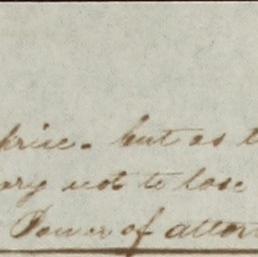 prise. but as t
ary not to lose
Power of attor